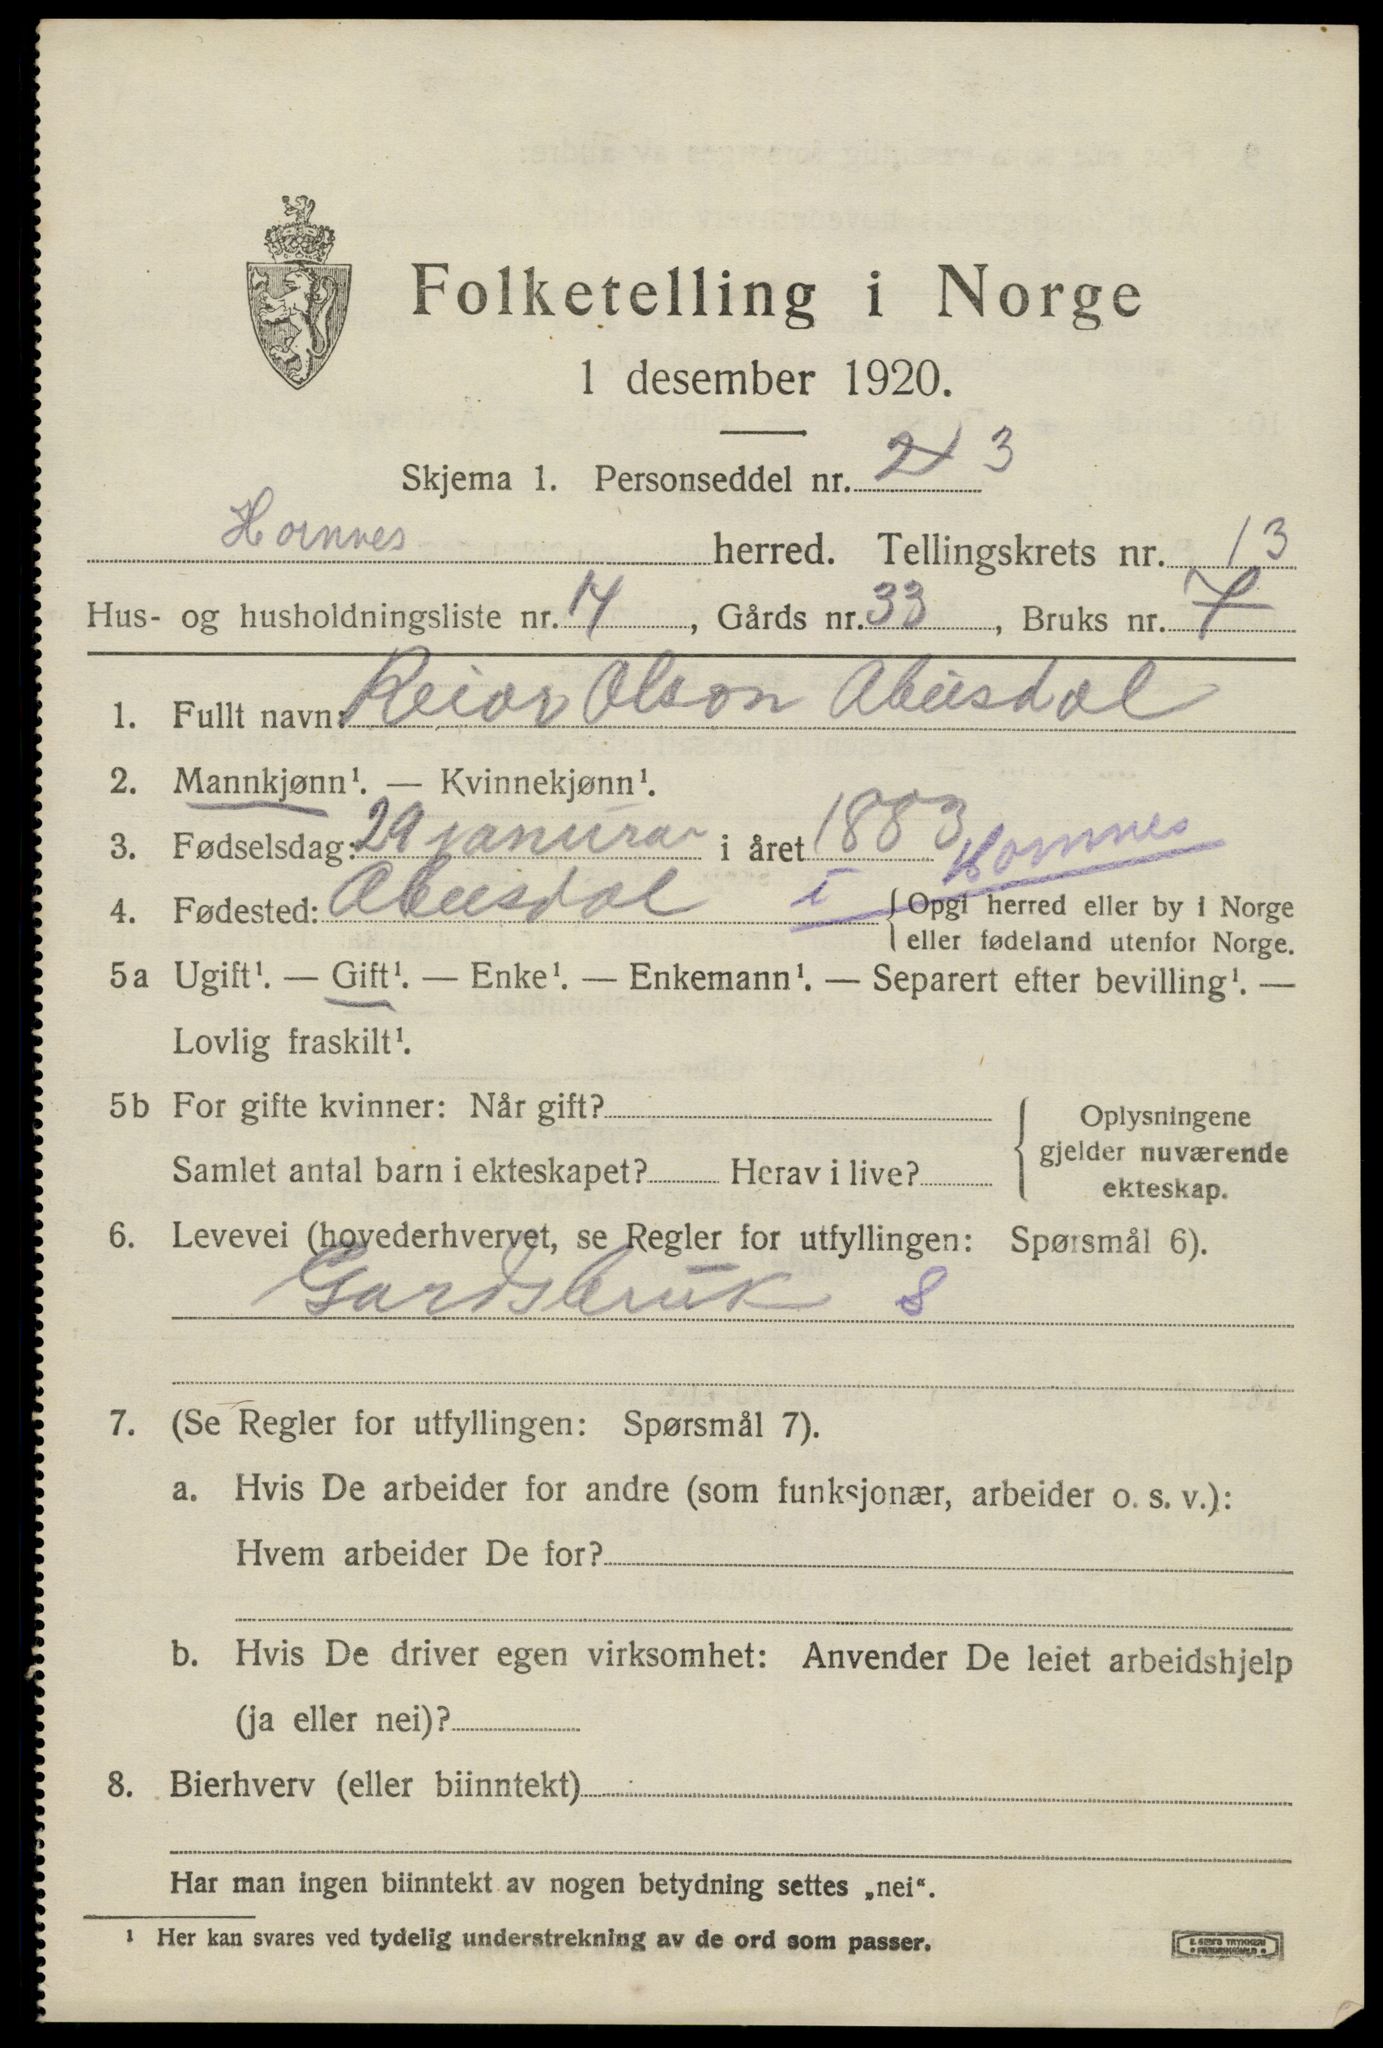 Folketelling i Norge
1 desember 1920.
Skjema 1. Personseddel nr. 2 3
Hornnes herred. Tellingskrets nr. 13
Hus- og husholdningsliste nr. 14, Gårds nr. 33, Bruks nr. 7
1. Fullt navn: Reiar Olson Abusdal
2. Mannkjønn¹. — Kvinnekjønn¹.
3. Fødselsdag: 29 januar i året 1883
4. Fødested: Abusdal i Hornnes {Opgi herred eller by i Norge
eller fødeland utenfor Norge.
5a Ugift¹. — Gift¹. — Enke¹. — Enkemann¹. — Separert efter bevilling¹. —
Lovlig fraskilt¹.
5b For gifte kvinner: Når gift? { Oplysningene
gjelder nuværende
Samlet antal barn i ekteskapet? Herav i live? ekteskap.
6. Levevei (hovederhvervet, se Regler for utfyllingen: Spørsmål 6).
Gardsbruk S
7. (Se Regler for utfyllingen: Spørsmål 7).
a. Hvis De arbeider for andre (som funksjonær, arbeider o. s. v.):
Hvem arbeider De for?
b. Hvis De driver egen virksomhet: Anvender De leiet arbeidshjelp
(ja eller nei)?
8. Bierhverv (eller biinntekt)
Har man ingen biinntekt av nogen betydning settes „nei“.
¹ Her kan svares ved tydelig understrekning av de ord som passer.